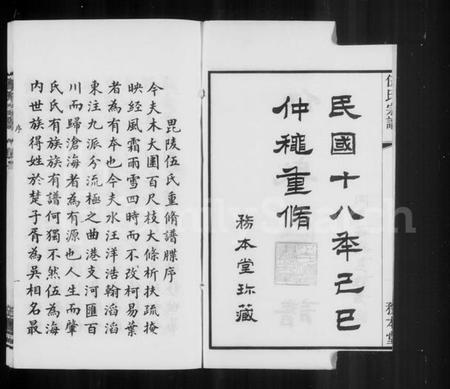 民國十八年己巳
仲穐重脩
務本堂珍藏
伍氏宗譜
務本堂
毘陵伍氏重脩譜牒序
今夫木大圍百尺枝大條析扶疏掩
映經風霜雨雪四時而不改柯易葉
者為有本也今夫水汪洋浩翰滔滔
東注九派分流極之曲港支河匯百
川而歸滄海者為有源也人生而肇
氏氏有族族有譜何獨不然伍為海
內世族得姓於楚子胥為吳相名最
序